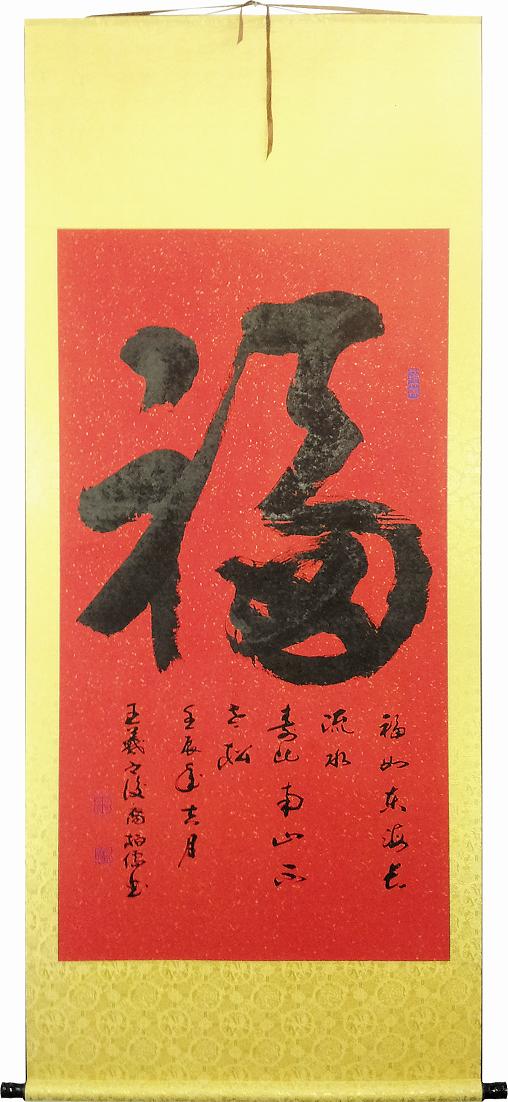 福
福如东海长
流水
寿比南山不
老松
壬辰年吉月
王羲之后裔柏儒书